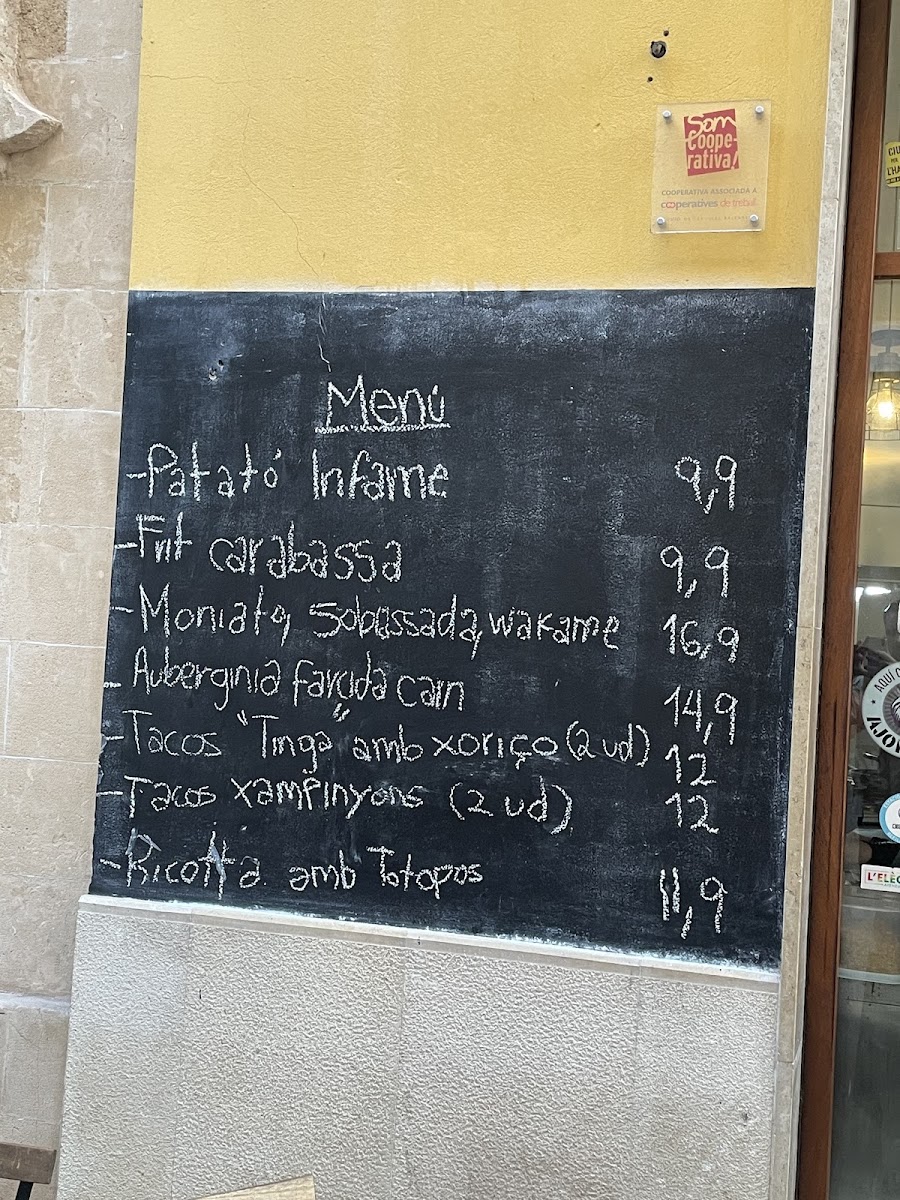 Som
Coope-
rativa!
COOPERATIVA ASSOCIADA A
cooperatives de treball
Menú
-Patató Infame 9,9
-Frit carabassa 9,9
-Moniato, Sobassada, wakame 16,9
- Auberginia farcida carn 14,9
-Tacos "Tinga" amb xoriço (2 ud) 12
-Tacos xampinyons (2 ud) 12
-Ricotta amb Totopos 11,9
AQUÍ
L'ELÈC